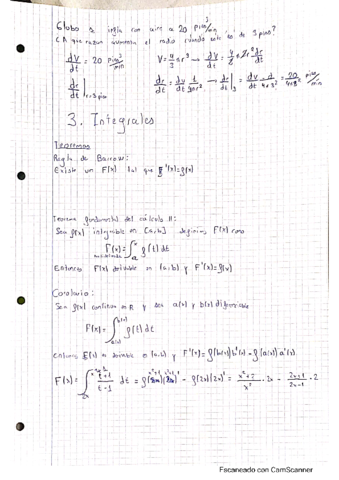 Globo se infla con aire a 20 pies³/min
¿A que razon aumenta el radio cuando este es de 3 pies?
dV/dt = 20 pies³/min   V = 4/3 π r³ → dV/dt =
dr/dt | r=3 pies   dr/dt = dV/dt · 1/4πr² → dr/dt |₃ = dV/dt · 1/4π·3² = 20/4π·3² pies/min
3. Integrales
Teoremas
Regla de Barrow:
Existe un F(x) tal que F'(x)=f(x)
Teorema fundamental del cálculo II:
Sea f(x) integrable en [a,b] definimos F(x) como
F(x) = ∫ f(t) dt
Entonces F(x) derivable en (a,b) y F'(x)=f(x)
Corolario:
Sea f(x) continua en R y sea a(x) y b(x) diferenciable
F(x) = ∫ f(t) dt
entonces F(x) es derivable en (a,b) y F'(x) = f(b(x)) b'(x) - f(a(x)) a'(x).
F(x) = ∫ t+1/t-1 dt = - f(2x)(2x)' = x²+2/x² · 2x - 2x+1/2x-1 · 2
Escaneado con CamScanner